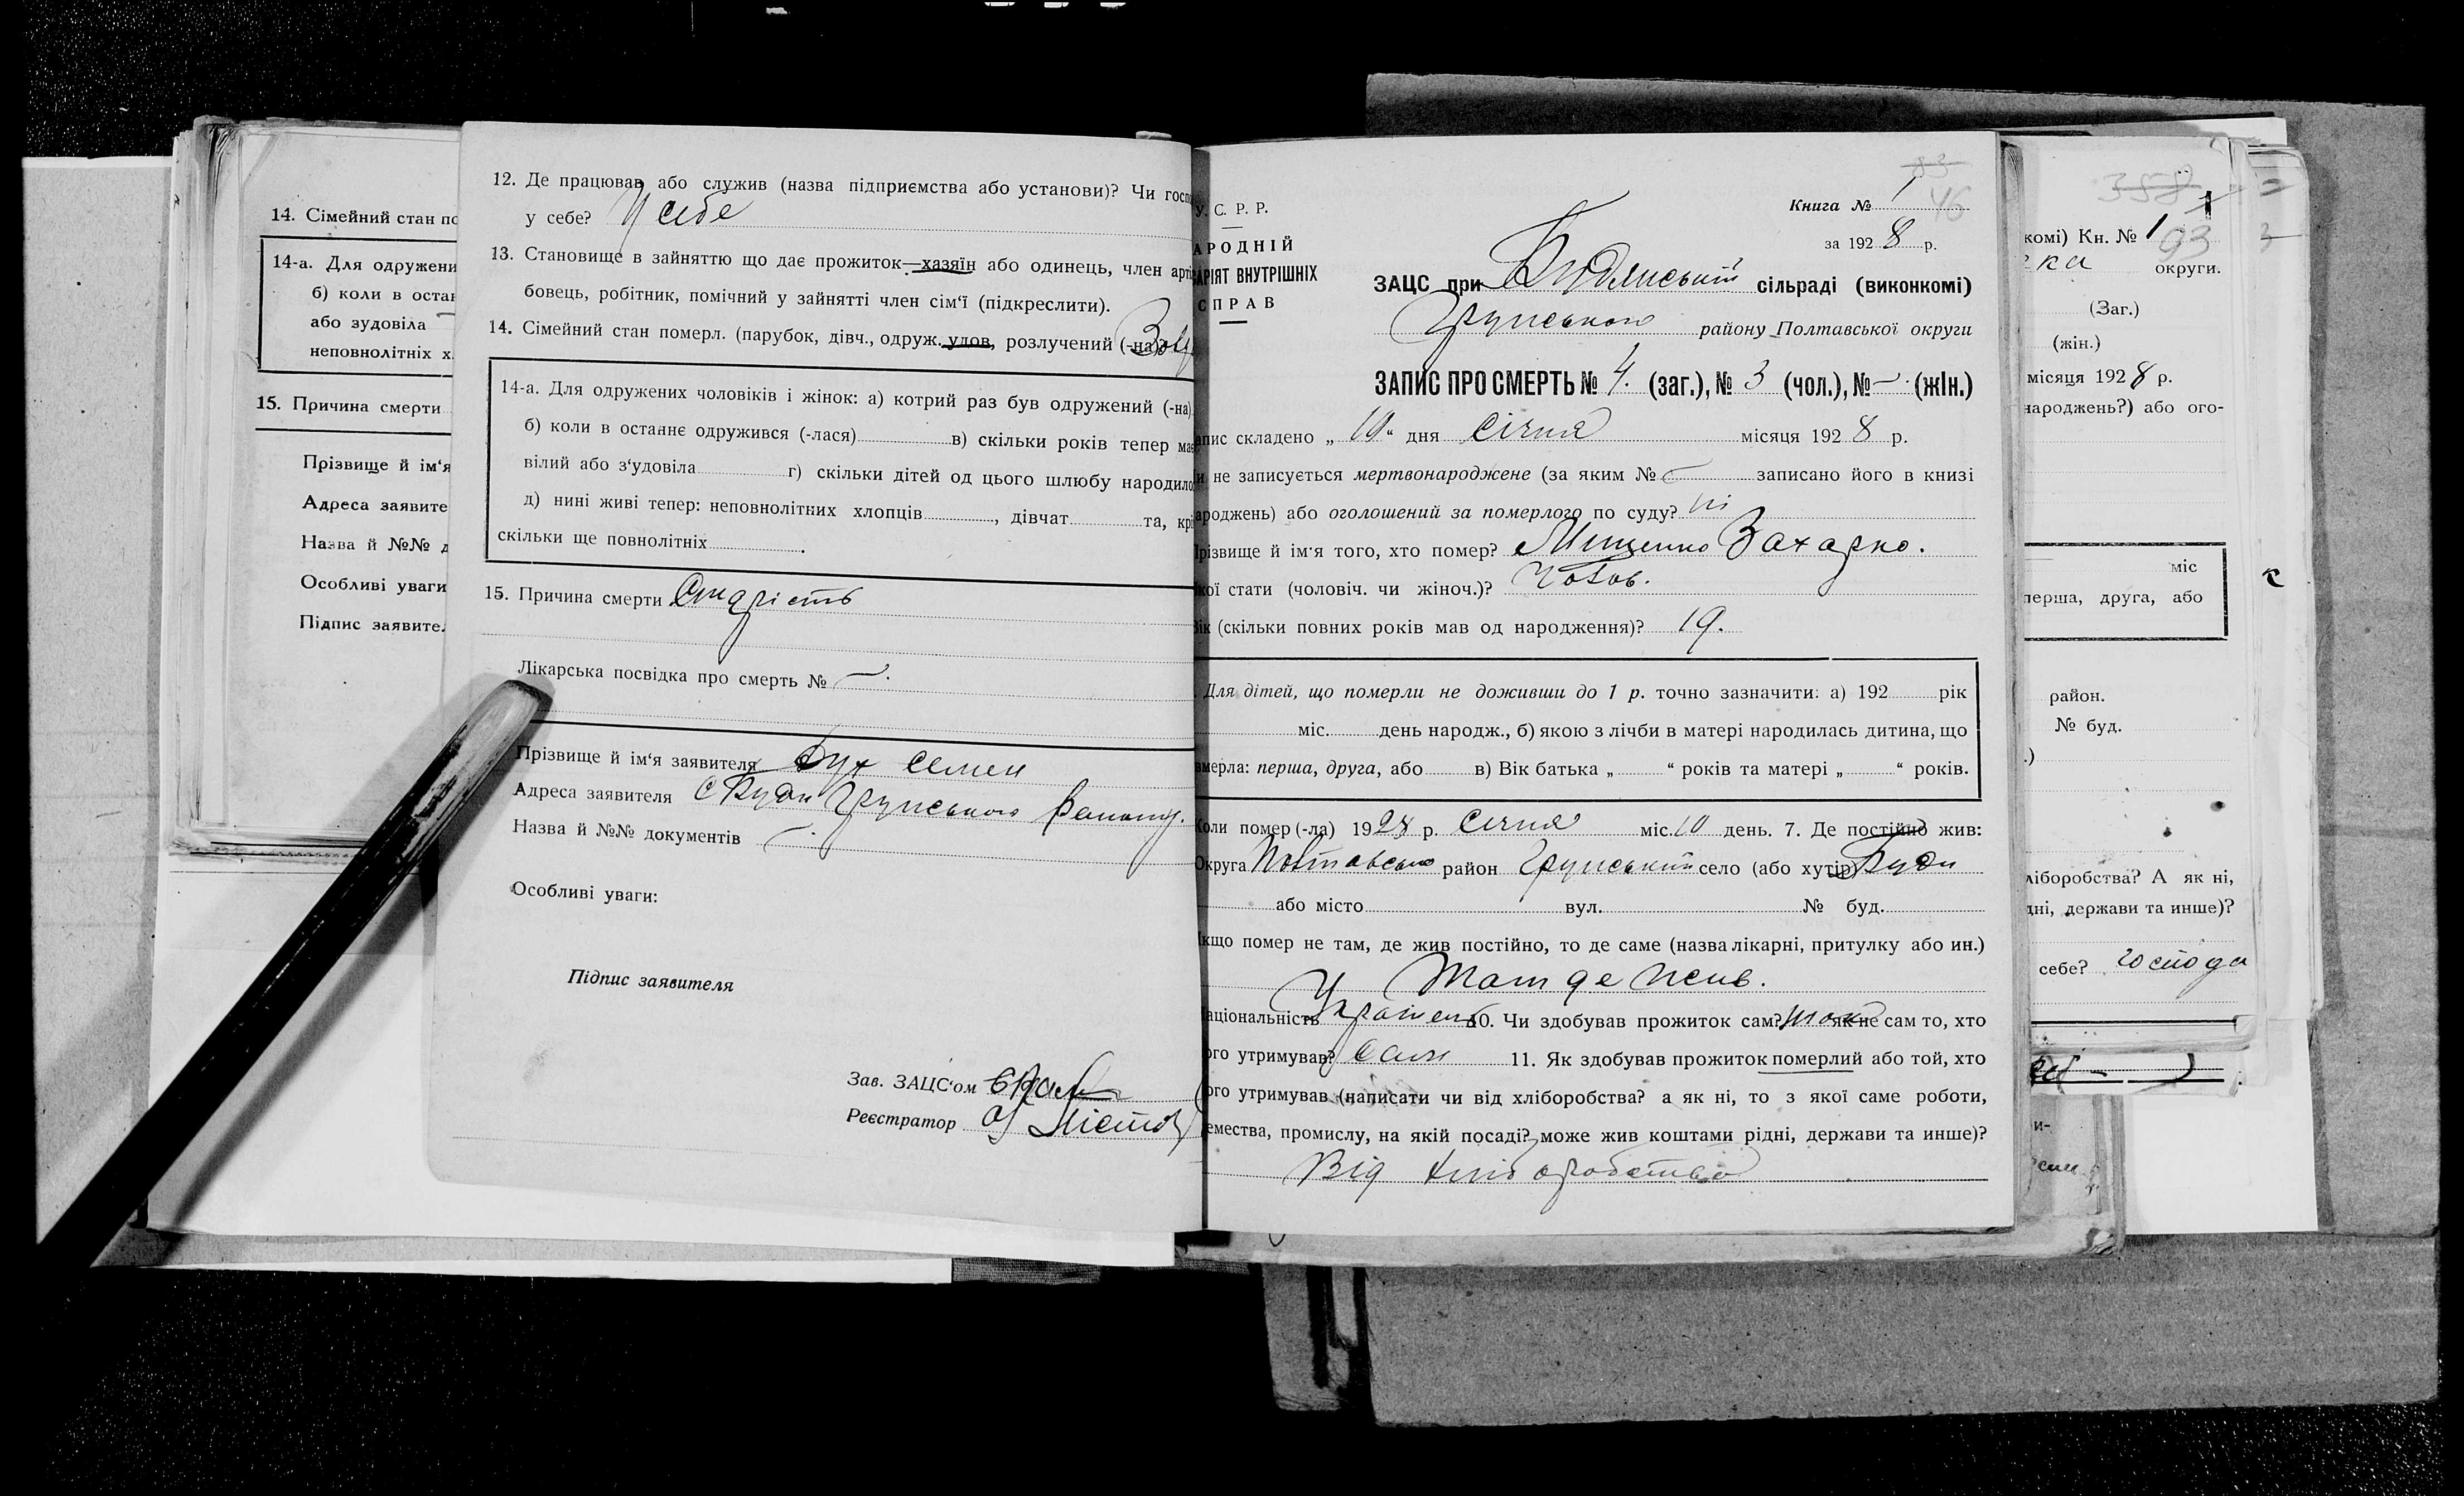 14. Сімейний стан по
14-а. Для одружени
б) коли в остан
або зудовіла
неповнолітніх х
15. Причина смерти
Прізвище й ім‘я
Адреса заявите
Назва й №№ д
Особливі уваги
Підпис заявите
12. Де працював або служив (назва підприємства або установи)? Чи госп
у себе? У себе
13. Становище в зайняттю що дає прожиток—хазяїн або одинець, член арті
бовець, робітник, помічний у зайнятті член сім‘ї (підкреслити).
14. Сімейний стан помер. (парубок, дівч., одруж. удов, розлучений (-на)
14-а. Для одружених чоловіків і жінок: а) котрий раз був одружений (-на)
б) коли в останнє одружився (-лася) в) скільки років тепер ма
вілий або з‘удовіла г) скільки дітей од цього шлюбу народило
д) нині живі тепер: неповнолітних хлопців , дівчат та, крі
скільки ще повнолітніх .
15. Причина смерти Старість
Лікарська посвідка про смерть № —.
Прізвище й ім‘я заявителя Бух Семен
Адреса заявителя с Буди Грунського району.
Назва й №№ документів —.
Особливі уваги:
Підпис заявителя
Зав. ЗАЦС‘ом
Реєстратор
У. С. Р. Р.
АРОДНІЙ
АРІЯТ ВНУТРІШНІХ
СПРАВ
83
46
Книга № 1
за 192 8 р.
ЗАЦС при Будянський сільраді (виконкомі)
Грунського району Полтавської округи
ЗАПИС ПРО СМЕРТЬ № 4. (заг.), № 3 (чол.), № — (жін.)
апис складено „ 10 “ дня січня місяця 192 8 р.
и не записується мертвонароджене (за яким № — записано його в книзі
ароджень) або оголошений за померлого по суду? ні
різвище й ім‘я того, хто помер? Мищенко Захарко.
кої стати (чоловіч. чи жіноч.)? Чолов.
Вік (скільки повних років мав од народження)? 19.
Для дітей, що померли не доживши до 1 р. точно зазначити: а) 192 рік
міс. день народж., б) якою з лічби в матері народилась дитина, що
вмерла: перша, друга, або в) Вік батька „ “ років та матері „ “ років.
Коли помер (-ла) 1928 р. Січня міс. 10 день. 7. Де постійно жив:
Округа Полтавська район Грунський село (або хутір) Буди
або місто вул. № буд.
кщо помер не там, де жив постійно, то де саме (назва лікарні, притулку або ин.)
Там де жив.
аціональність Українець 10. Чи здобував прожиток сам? як не сам то, хто
ого утримував? сам 11. Як здобував прожиток померлий або той, хто
ого утримував (написати чи від хліборобства? а як ні, то з якої саме роботи,
емества, промислу, на якій посаді? може жив коштами рідні, держави та инше)?
Від хліборобства
358
1
93
комі) Кн. № 1
ка округи.
(Заг.)
(жін.)
місяця 192 8 р.
народжень?) або ого-
міс
перша, друга, або
район.
№ буд.
.)
ліборобства? А як ні,
дні, держави та инше)?
себе? господа
и-